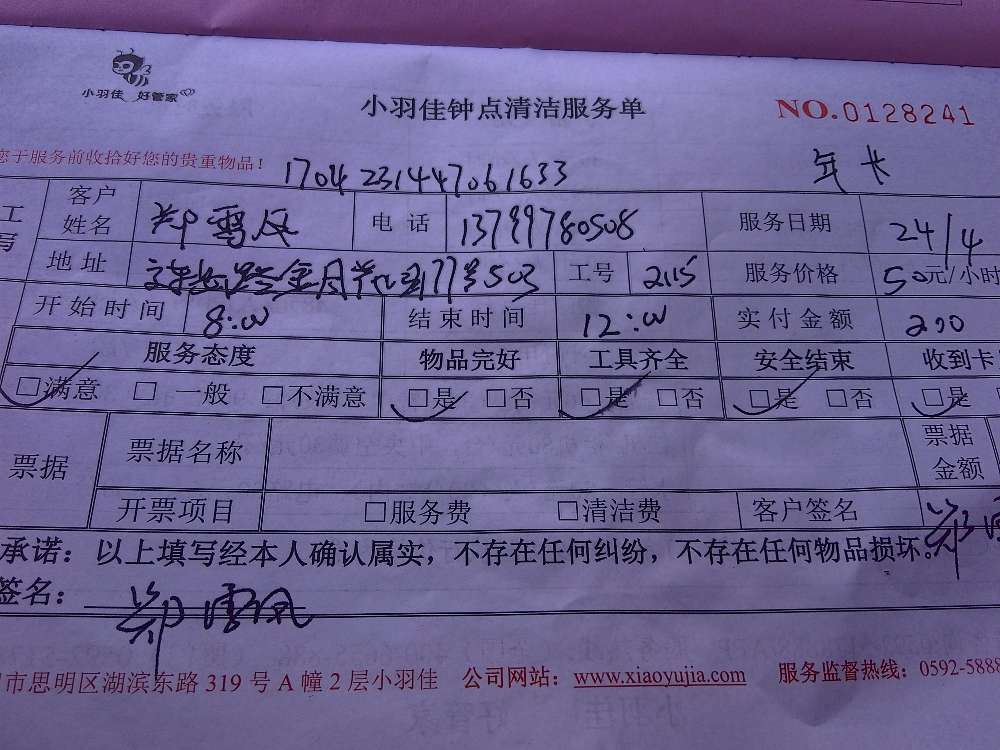 小羽佳 好管家
小羽佳钟点清洁服务单 NO.0128241
您于服务前收拾好您的贵重物品！ 170423144706 1633 年卡
客户姓名 郑雪凤 电话 13799780508 服务日期 24/4
地址 金月 177号503 工号 2115 服务价格 50元/小时
开始时间 8:00 结束时间 12:00 实付金额 200
服务态度 物品完好 工具齐全 安全结束 收到卡
□满意 □一般 □不满意 □是 □否 □是 □否 □是 □否 □是
票据 票据名称 票据金额
开票项目 □服务费 □清洁费 客户签名 郑
承诺：以上填写经本人确认属实，不存在任何纠纷，不存在任何物品损坏。
签名： 郑雪凤
市思明区湖滨东路 319 号 A 幢 2 层小羽佳 公司网站：www.xiaoyujia.com 服务监督热线：0592-5888